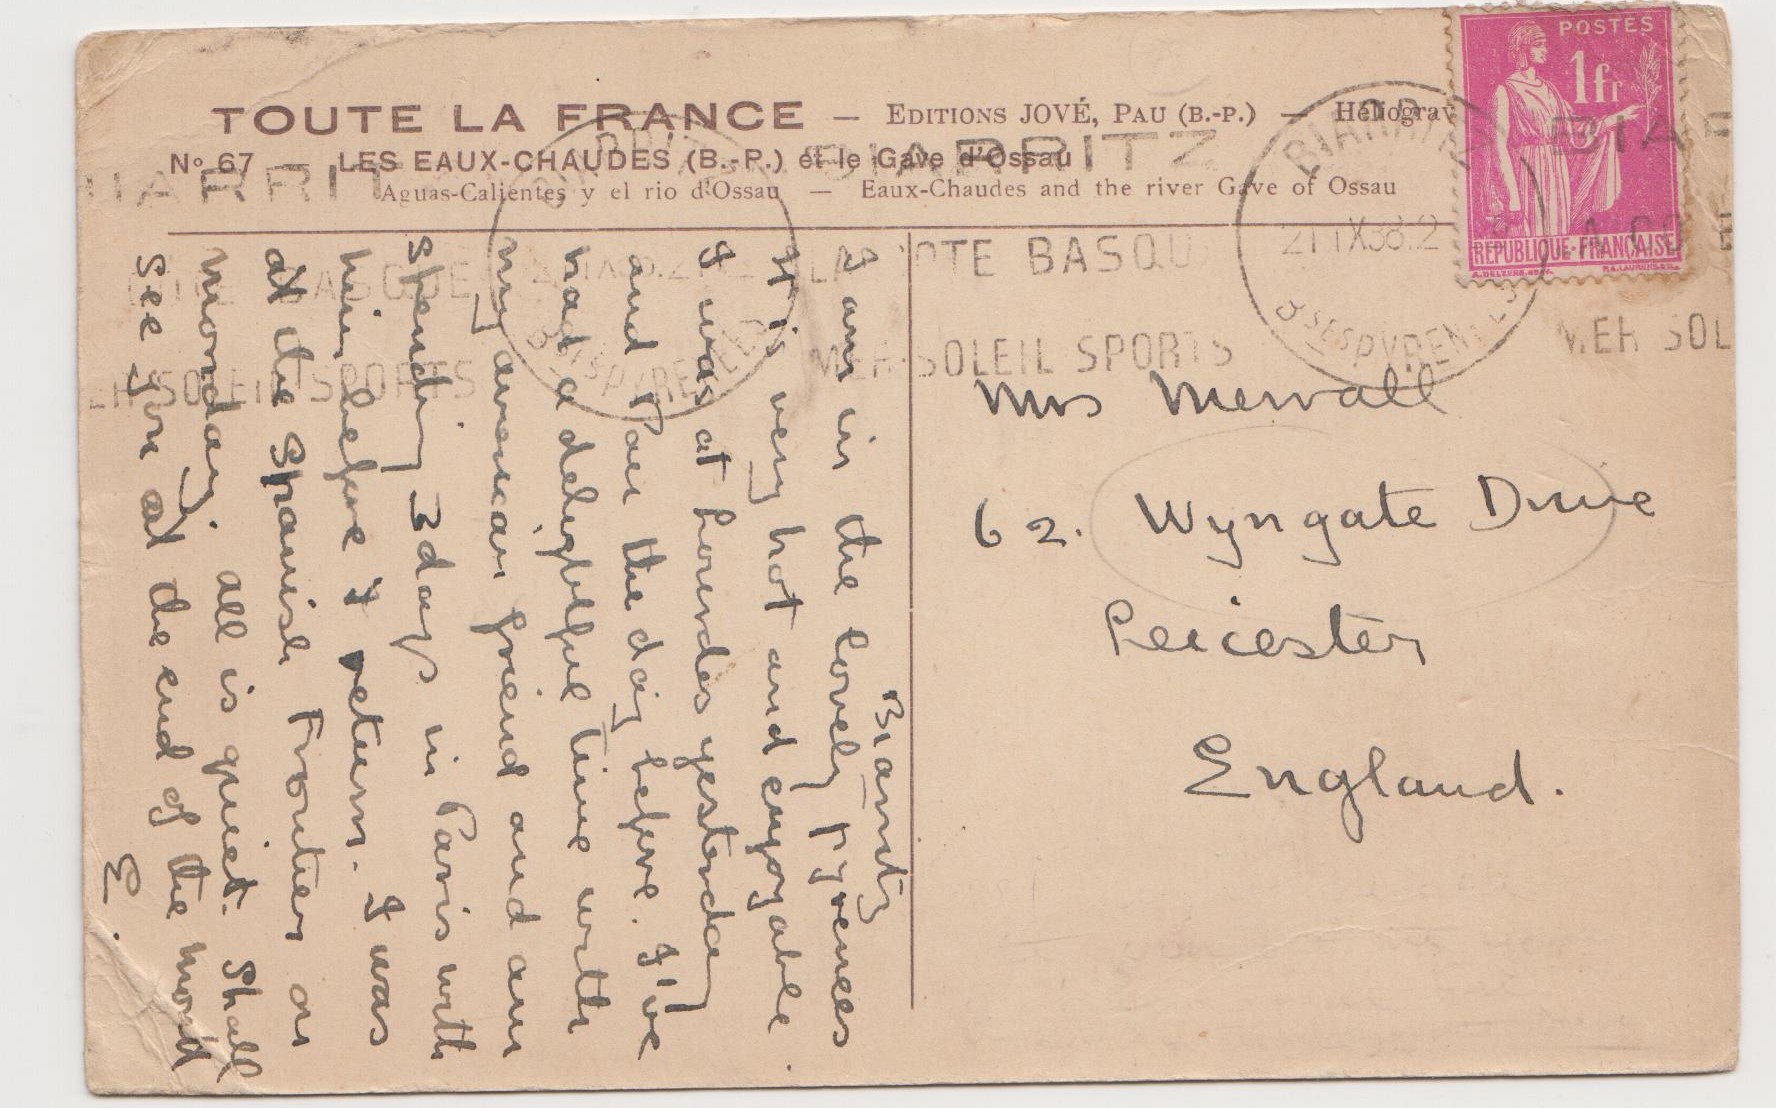 TOUTE LA FRANCE — EDITIONS JOVÉ, PAU (B.-P.) — Héliograv
Nº 67 — LES EAUX-CHAUDES (B.-P.) et le Gave d'Ossau
Aguas-Calientes y el rio d'Ossau — Eaux-Chaudes and the river Gave of Ossau
POSTES
1fr
REPUBLIQUE-FRANÇAISE
BIARRITZ
BIARRITZ
BSES PYRENEES
BIARRITZ
COTE BASQUE
MER·SOLEIL SPORTS
Biarritz
I am in the lovely pyrenees
It is very hot and enjoyable.
I was at Lourdes yesterday
and Pau the day before. I've
had a delightful time with
my american friend and am
spending 3 days in Paris with
him before I return. I was
at the Spanish Frontier on
monday. all is quiet. Shall
see you at the end of the month
E.
Mrs
62. Wyngate Drive
Leicester
England.